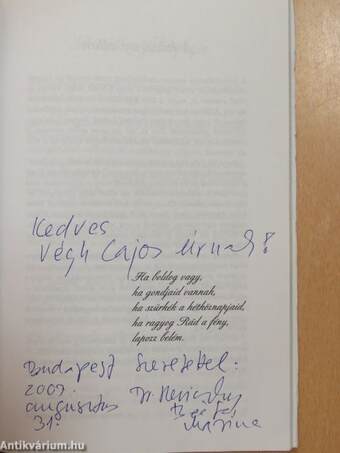 Kedves
Végh Lajos úrnak!
Ha boldog vagy,
ha gondjaid vannak,
ha szürkék a hétköznapjaid,
ha ragyog Rád a fény,
lapozz belém.
Budapest Szeretettel:
2009. Dr.
augusztus
31.
Antikvárium.hu